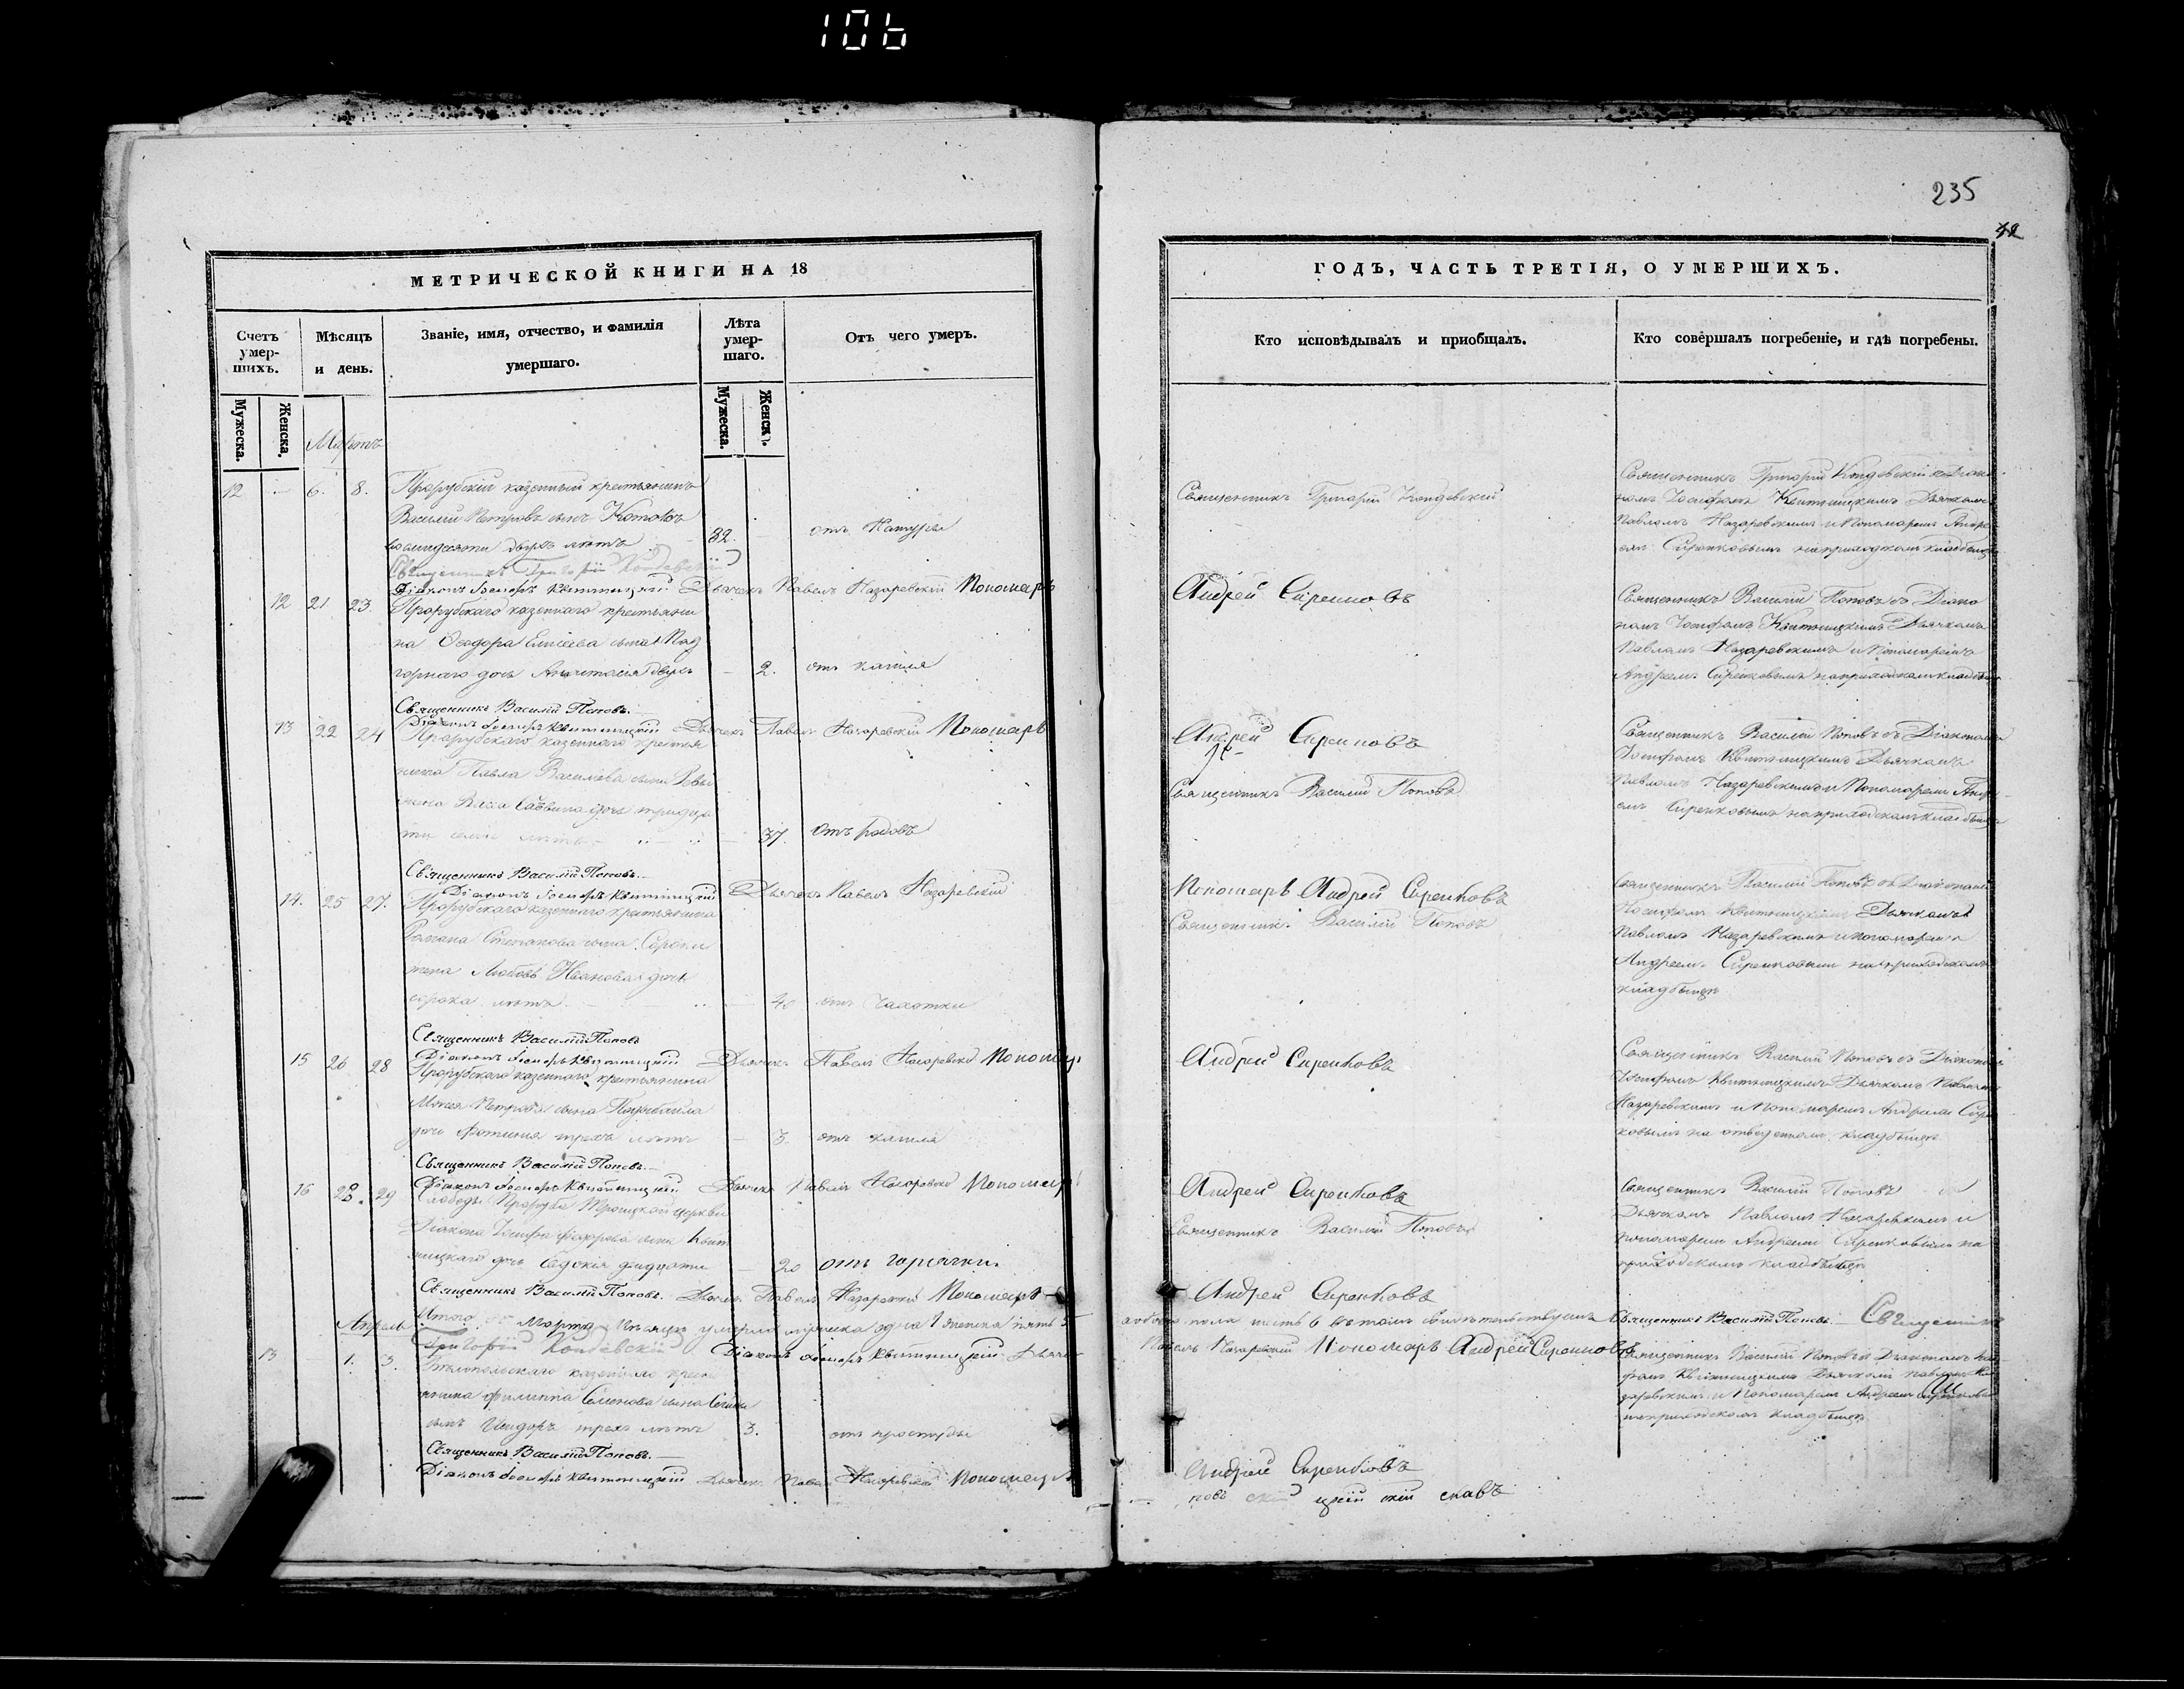 106
МЕТРИЧЕСКОЙ КНИГИ НА 18
Счетъ умер-шихъ.
Мѣсяцъ и день.
Званіе, имя, отчество, и фамилія умершаго.
Лѣта умер-шаго.
Отъ чего умеръ.
Мужеска.
Женска.
Мужеска.
Женскъ.
Мартъ
12 6. 8. Прорубскій казенный крестьянинъ
Василий Петровъ сынъ
восмидесяти двухъ лѣтъ 82. отъ Натуры
Священникъ Григорій
Діаконъ Іосифъ Квитницкій Дьячекъ Павелъ Назаревскій Пономарь
12 21 23. Прорубскаго казеннаго крестьяни
на Ѳеодора Елисеева сына Под
горнаго дочь Анастасія двухъ 2. отъ кашля
Священникъ Василій Поповъ.
Діаконъ Іосифъ Квитницкій Дьячекъ Павелъ Назаревскій Пономарь
13 22 24 Прорубскаго казеннаго крестья
нина Павла Василіева сына
жена Саввина дочь тридца
ти семи лѣтъ 37. отъ родовъ
Священникъ Василій Поповъ.
Діаконъ Іосифъ Квитницкій Дьячекъ Павелъ Назаревскій
14. 25 27. Прорубскаго казеннаго крестьянина
Романа Степанова сына Сороки
жена Любовь Иванова дочь
сорока лѣтъ 40 отъ чахотки
Священникъ Василій Поповъ
Діаконъ Іосифъ Квитницкій Дьячекъ Павелъ Назаревскій Пономарь
15 26 28 Прорубскаго казеннаго крестьянина
Петрова сына
дочь Фотинія трехъ лѣтъ 3. отъ кашля
Священникъ Василій Поповъ.
Діаконъ Іосифъ Квитницкій Дьячекъ Павелъ Назаревскій Пономарь
16 28. 29 Слободы Троицкой церкви
Діакона Іосифа сына Квит
ницкаго дочь двадцати 20 отъ горячки.
Священникъ Василій Поповъ. Дьячекъ Павелъ Назаревскій Пономарь
Итого Марта мѣсяцѣ умерло мужеска одна 1 женска пять 5
Апрель
Григорій Діаконъ Іосифъ Квитницкій Дьячекъ
13 1. 3. казеннаго кресть
янина Филиппа Семенова сына
сынъ трехъ лѣтъ 3. отъ простуды
Священникъ Василій Поповъ.
Діаконъ Іосифъ Квитницкій Дьячекъ Павелъ Назаревскій Пономарь
235
ГОДЪ, ЧАСТЬ ТРЕТІЯ, О УМЕРШИХЪ.
Кто исповѣдывалъ и пріобщалъ.
Кто совершалъ погребеніе, и гдѣ погребены.
Священникъ Григорій
Священникъ Григорій съ Діако
номъ Іосифомъ Квитницкимъ Дьячкомъ
Павломъ Назаревскимъ и Пономаремъ Андре
емъ Сиренковымъ на приходскомъ кладбищѣ
Андрей Сиренковъ
Священникъ Василій Поповъ съ Діако
номъ Іосифомъ Квитницкимъ Дьячкомъ
Павломъ Назаревскимъ и Пономаремъ
Андреемъ Сиренковымъ на приходскомъ кладбищѣ
Андрей Сиренковъ
Священникъ Василій Поповъ
Священникъ Василій Поповъ съ Діакономъ
Іосифомъ Квитницкимъ Дьячкомъ
Павломъ Назаревскимъ и Пономаремъ Андре
емъ Сиренковымъ на приходскомъ кладбищѣ
Пономарь Андрей Сиренковъ
Священникъ Василій Поповъ
Священникъ Василій Поповъ съ Діакономъ
Іосифомъ Квитницкимъ Дьячкомъ
Павломъ Назаревскимъ и пономаремъ
Андреемъ Сиренковымъ на приходскомъ
кладбищѣ
Андрей Сиренковъ
Священникъ Василій Поповъ съ Діакономъ
Іосифомъ Квитницкимъ Дьячкомъ Павломъ
Назаревскимъ и Пономаремъ Андреемъ Сирен
ковымъ на отведенномъ кладбищѣ
Андрей Сиренковъ
Священникъ Василій Поповъ
Священникъ Василій Поповъ
Дьячкомъ Павломъ Назаревскимъ и
пономаремъ Андреемъ Сиренковымъ на
приходскомъ кладбищѣ
Андрей Сиренковъ
обоего пола шесть 6 въ томъ свидѣтельствуемъ Священникъ Василій Поповъ. Священникъ
Павелъ Назаревскій Пономарь Андрей Сиренковъ
Священникъ Василій Поповъ съ Діакономъ Іоси
фомъ Квитницкимъ Дьячкомъ Павломъ На
заревскимъ и Пономаремъ Андреемъ Сиренковымъ
на приходскомъ кладбищѣ
Андрей Сиренковъ
повъ скій цкій скій ковъ